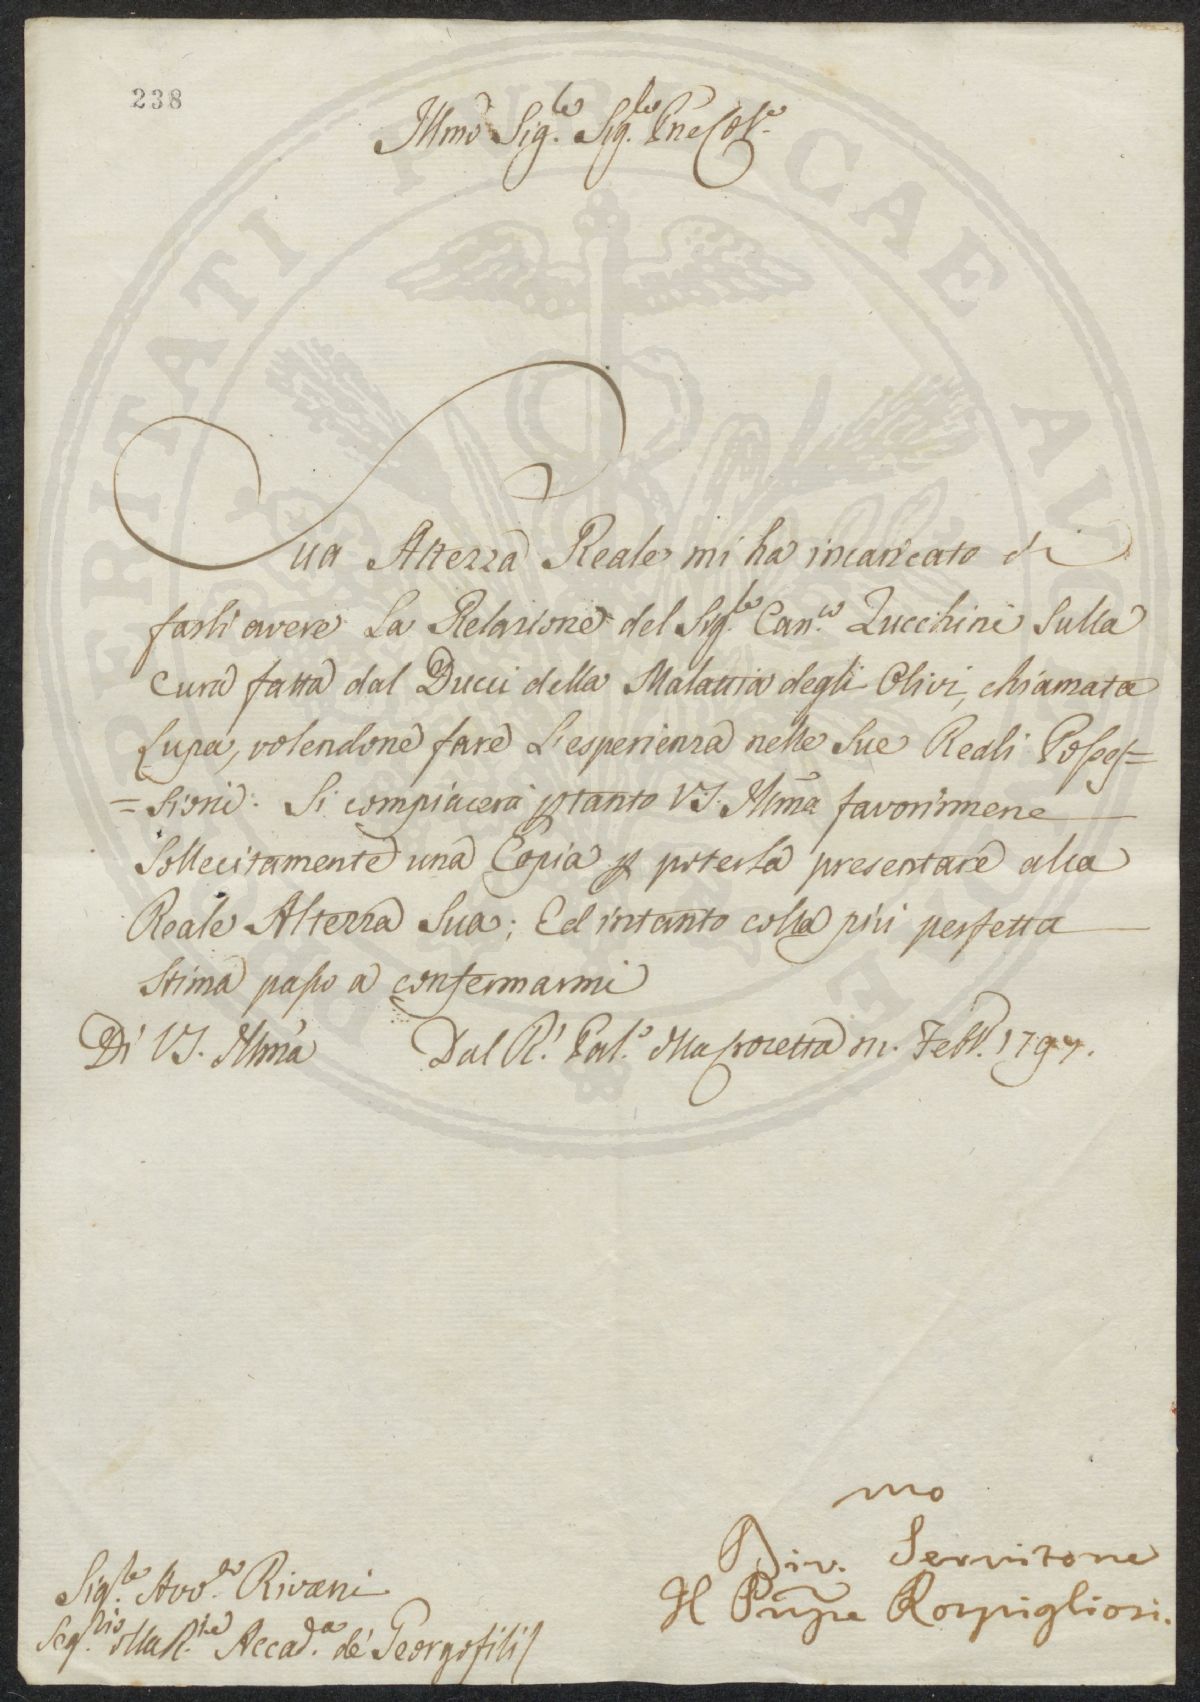 238
Illmo Sig.re Sig.re Pne Col.o
Sua Altezza Reale mi ha incaricato di
farli avere La Relazione del Sig.re Can.co Zucchini Sulla
Cura fatta dal Ducci della Malattia degli Olivi, chiamata
Lupa, volendone fare L'esperienza nelle Sue Reali Posses=
=sioni. Si compiacerà ptanto VS. Illma favorirmene
Sollecitamente una Copia p poterla presentare alla
Reale Altezza Sua; Ed intanto colla più perfetta
Stima passo a confermarmi
Di VS. Illma Dal R. Pal.o della Crocetta m. Febb. 1797.
mo
Div. Servitore
Il Pnpe Rospigliosi.
Sig.re Avv.to Rivani
Seg.rio della R.le Accad.a de' Georgofili
PROSPERITATI PUBLICAE AUGENDAE